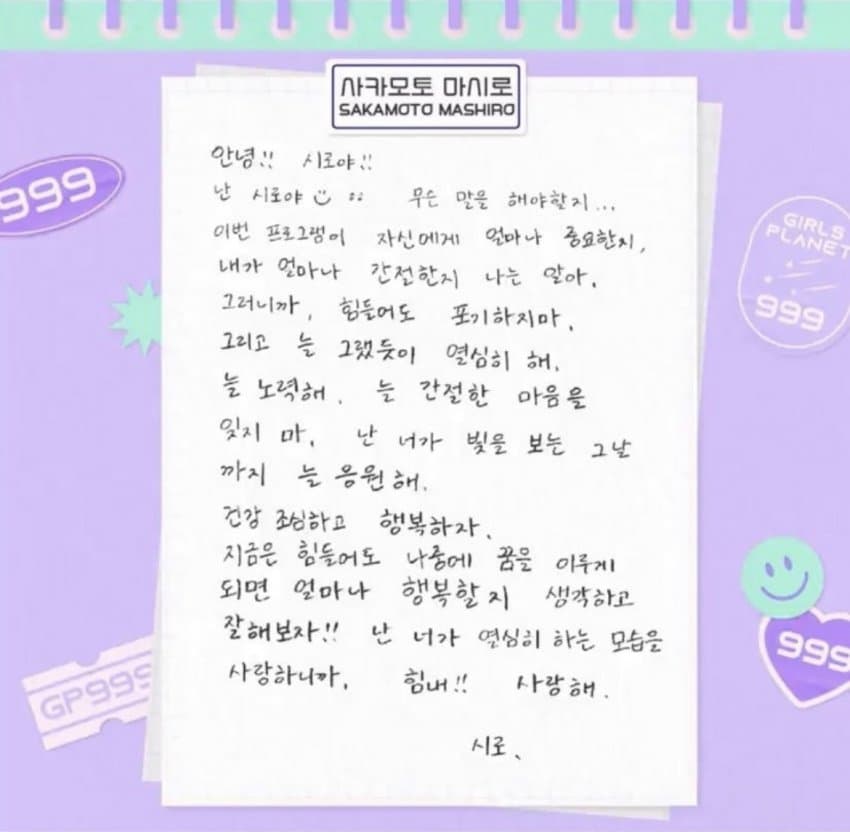 사카모토 마시로
SAKAMOTO MASHIRO
안녕!! 시로야!!
난 시로야 무슨 말을 해야할지...
이번 프로그램이 자신에게 얼마나 중요한지,
내가 얼마나 간절한지 나는 알아.
그러니까, 힘들어도 포기하지마.
그리고 늘 그랬듯이 열심히 해.
늘 노력해. 늘 간절한 마음을
잊지 마. 난 너가 빛을 보는 그날
까지 늘 응원해.
건강 조심하고 행복하자.
지금은 힘들어도 나중에 꿈을 이루게
되면 얼마나 행복할지 생각하고
잘해보자!! 난 너가 열심히 하는 모습을
사랑하니까. 힘내!! 사랑해.
시로.
999
GIRLS
PLANET
999
999
GP999